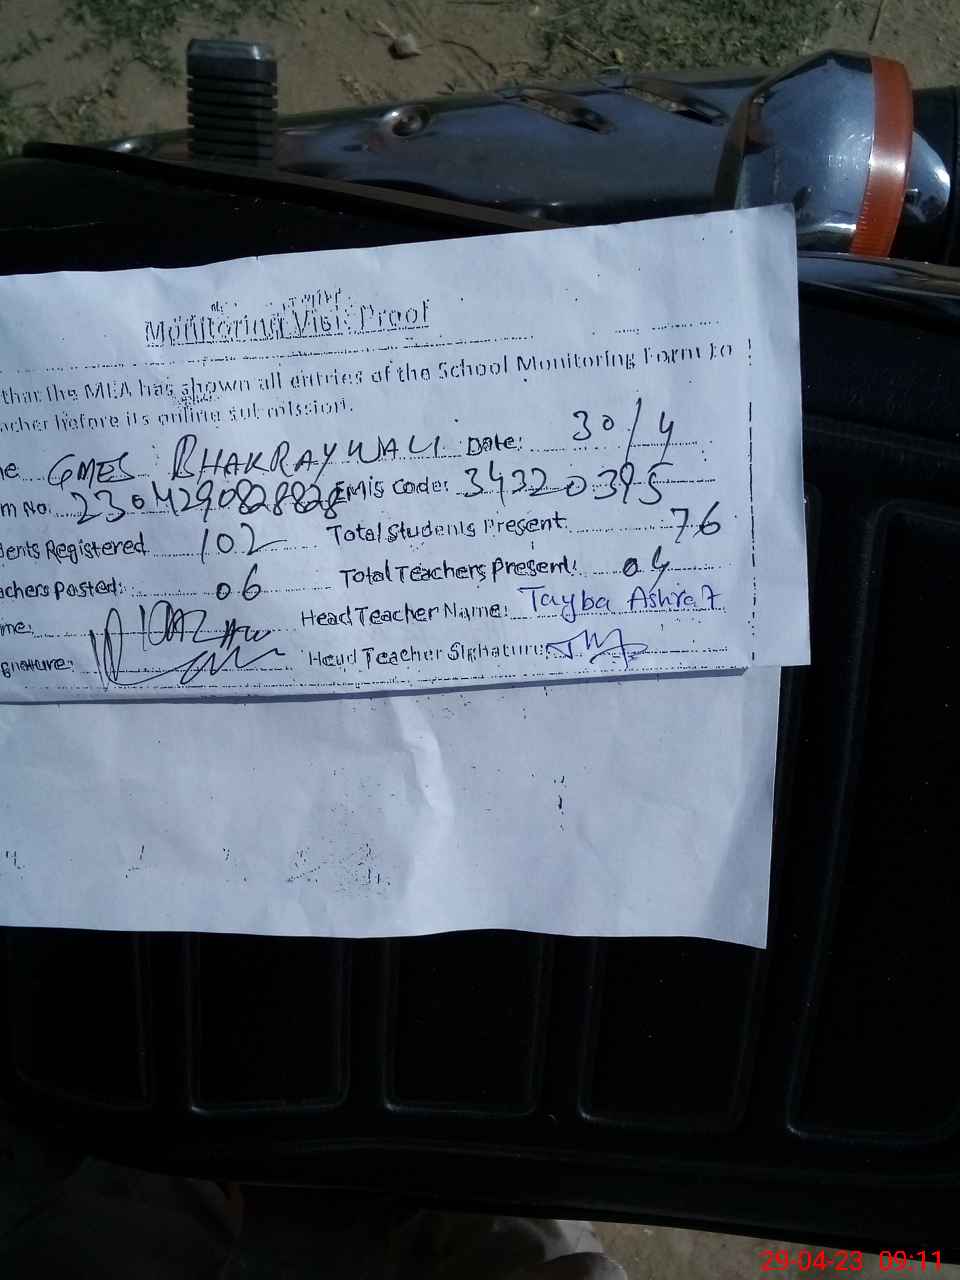 Monitoring Visit Proof
that the MEA has shown all entries of the School Monitoring Form to
acher before its online submission.
me GMES BHAKRAYWALI Date: 30/4
m No. 2304290828828 EMIS Code: 34320395
dents Registered 102 Total Students Present 76
achers Posted: 06 Total Teachers Present: 04
me: Head Teacher Name: Tayba Ashraf
gnature: Head Teacher Signature:
29-04-23 09:11